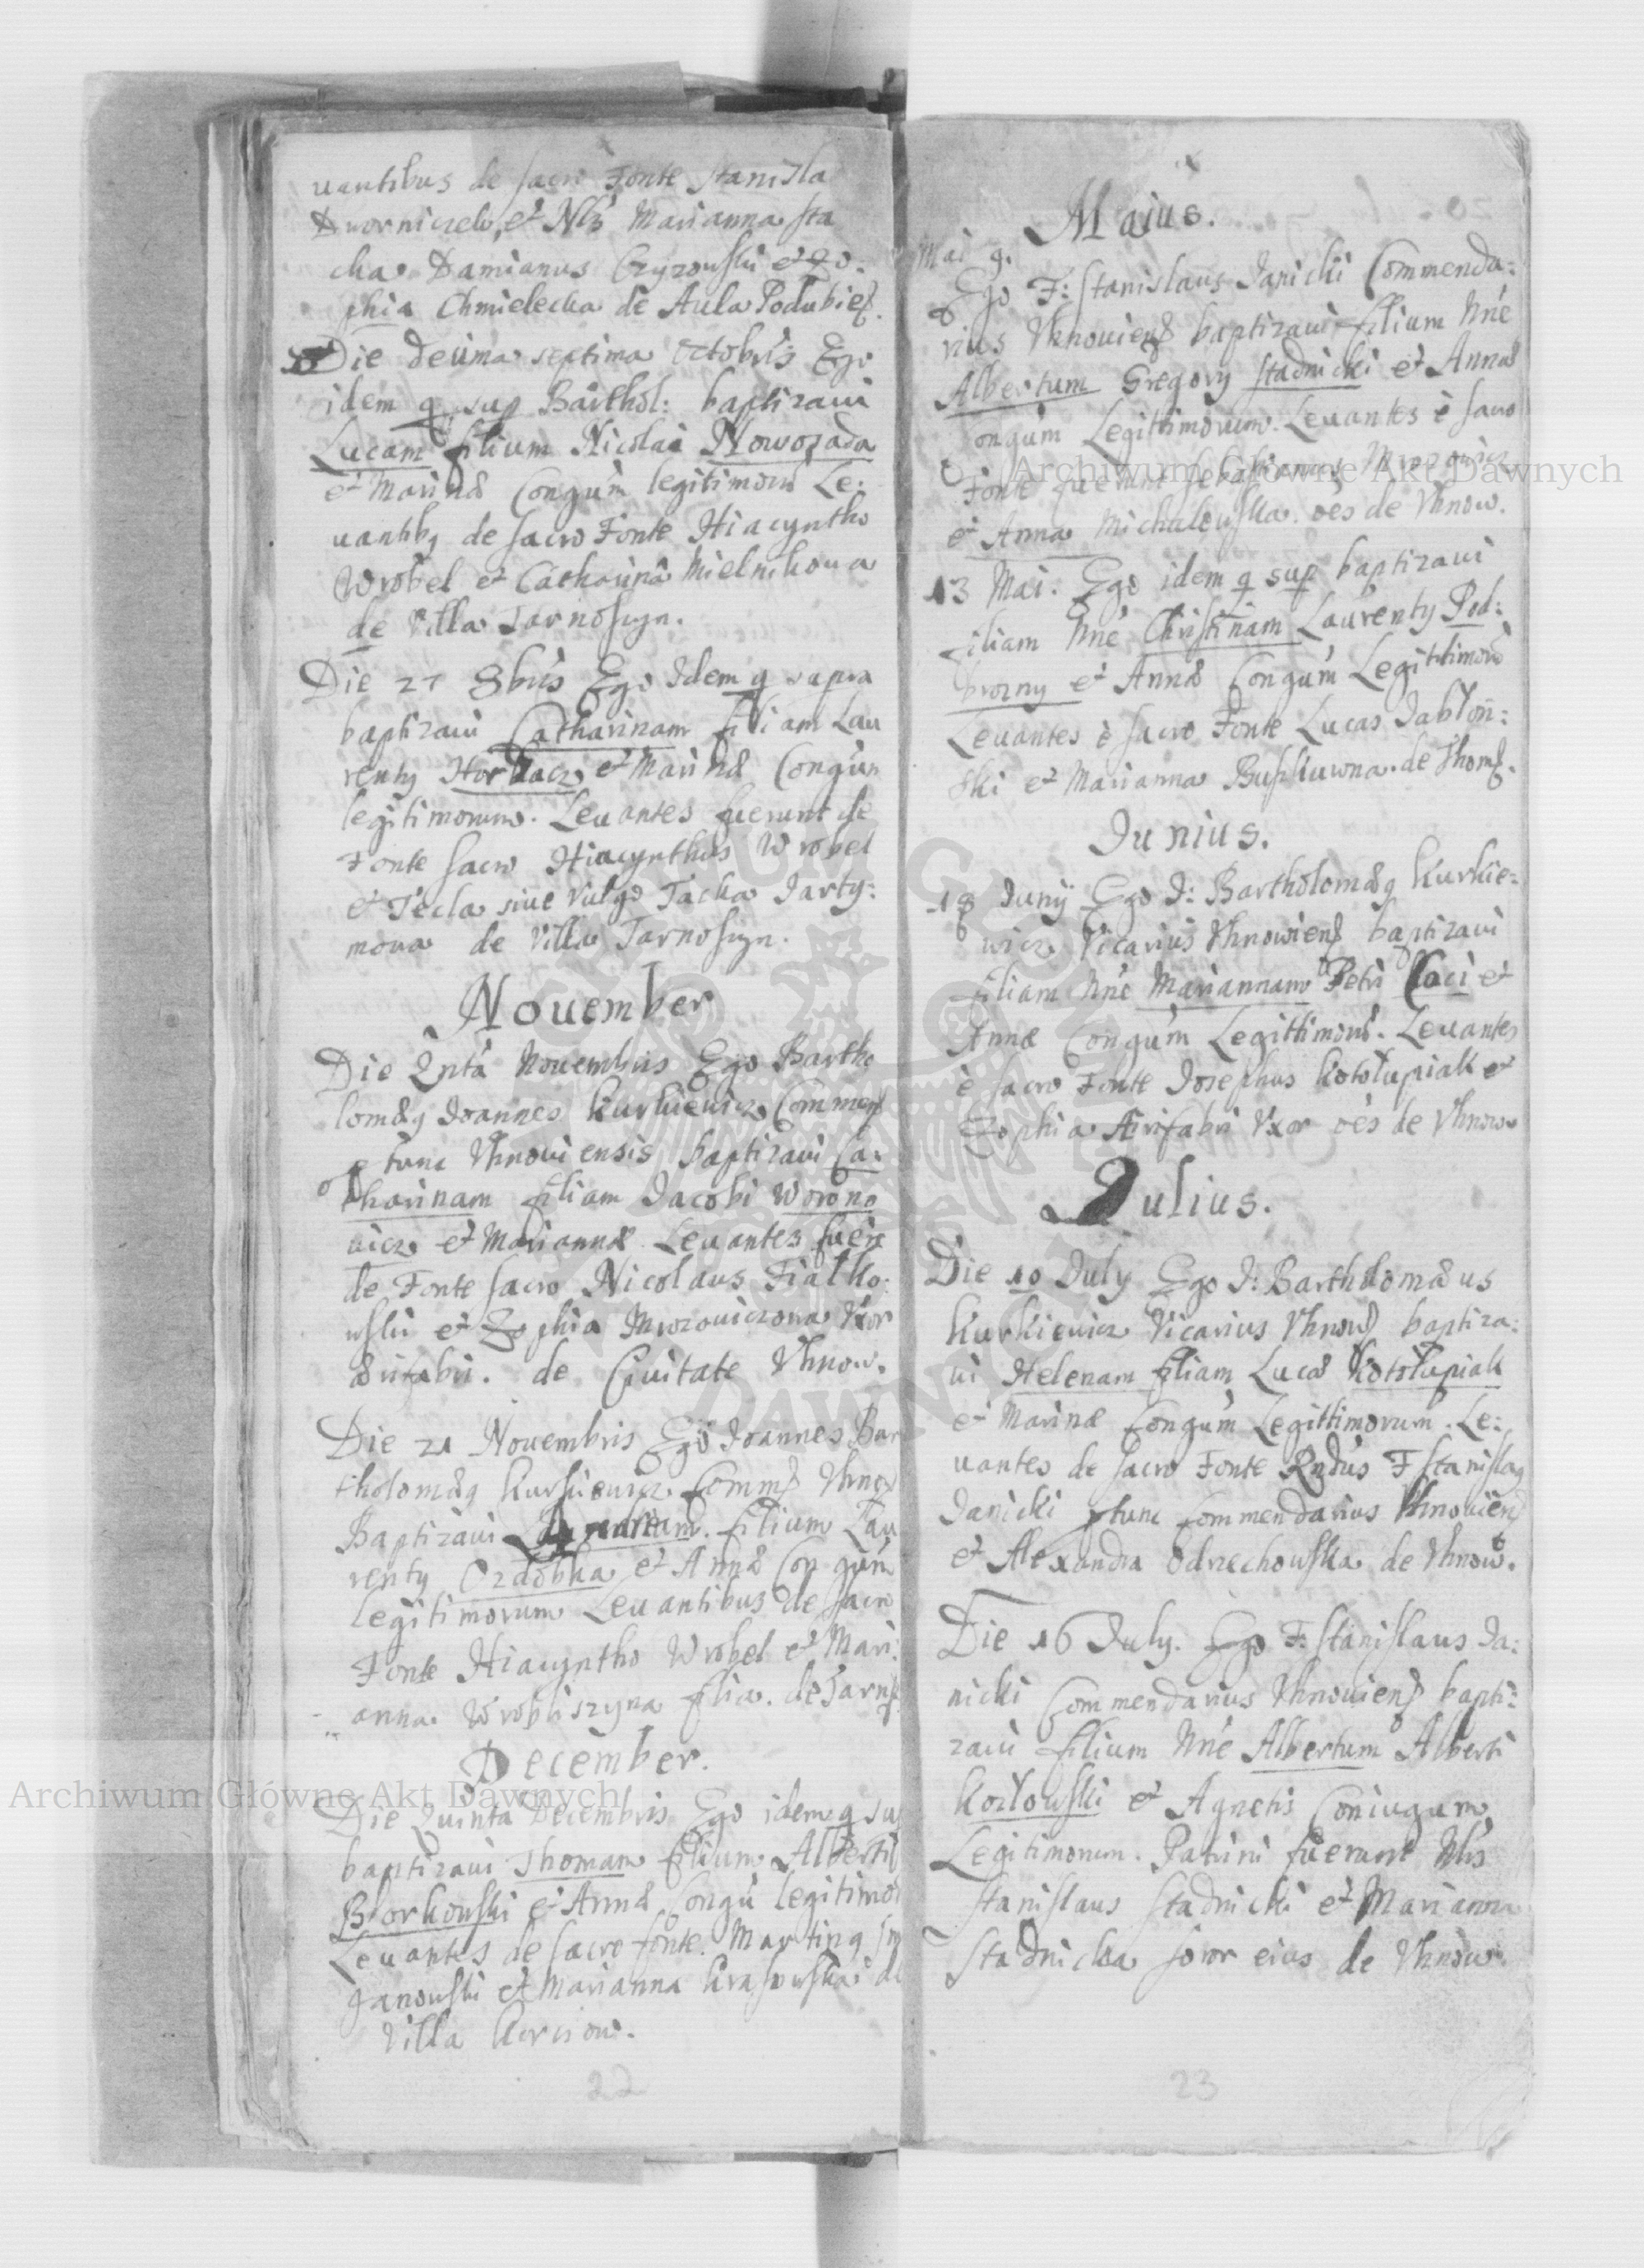 uantibus de sacro Fonte Stanisla
Dworniczek et Nlis Marianna Sta
cha. Damianus Czyzouski et Zo-
phia Chmielecka de Aula Podubies.
Die decima septima Octobris Ego
idem q sup Barthol: baptizaui
Lucam filium Nicolai Nowosada
et Marinæ Congum legitimoru Le:
uantibq de sacro Fonte Hiacyntho
Wrobel et Catharina Mielnikoua
de Villa Tarnoszyn.
Die 27 8bris Ego Idem q supra
baptizaui Catharinam filiam Lau
renty Horbacz et Marinæ Congum
legitimorum. Leuantes fuerunt de
Fonte sacro Hiacynthus Wrobel
et Tecla siue vulgo Tacka Jarty:
moua de Villa Tarnoszyn.
Nouember
Die Qnta Nouembris Ego Bartho
lomæq Joannes Kurkieuicz Commen
p tunc Vhnouiensis baptizaui Ca:
tharinam filiam Jacobi Worono
uicz et Mariannæ. Leuantes fuere
de Fonte sacro Nicolaus Fiałko:
wski et Zophia Mrozouiczowa Vxor
Aurifabri. de Ciuitate Vhnow.
Die 21 Nouembris Ego Joannes Bar
tholomæq Kurkieuicz Comm Vhno
Baptizaui filium Lau
renty Ozdobka et Annæ Congum
legitimorum Leuantibus de sacro
Fonte Hiacyntho Wrobel et Mari:
anna Wrobliszyna filia. de Tarnos
December.
Die Quinta Decembris Ego idem q su
baptizaui Thomam filium Alberti
Borkouski et Annæ Congu legitimor
Leuantes de sacro fonte. Martinq
Janouski et Marianna Krasouska de
Villa Korczow.
22
Maius.
Mai 9.
Ego F: Stanislaus Janicki Commenda:
rius Vhnouiens baptizaui filium Nne
Albertum Gregory Stadnicki et Annæ
Congum Legittimorum. Leuantes e sacro
Fonte fuerunt Sebastianus Mrozouicz
et Anna Michalewska. oes de Vhnow.
13 Mai. Ego idem q sup baptizaui
filiam Nne Christinam Laurenty Pod:
brozny et Annæ Congum Legittimoru
Leuantes e sacro Fonte Lucas Jabłon:
ski et Marianna Buskiuwna. de Thom.
Junius.
18 Juny Ego J: Bartholomæq Kurkie:
wicz Vicarius Vhnowiens baptizaui
filiam Nne Mariannam Petri Caci et
Annæ Congum Legittimoru. Leuantes
e sacro Fonte Josephus Kotołupiak et
Zophia Aurifabri Vxor oes de Vhnow
Julius.
Die 10 July Ego J: Bartholomæus
Kurkieuicz Vicarius Vhnow baptiza:
ui Helenam filiam Lucæ Kotołupiak
et Marinæ Congum Legittimorum. Le:
uantes de sacro Fonte Rndus F Stanislaq
Janicki ptunc Commendarius Vhnouien
et Alexandra Odrzechowska de Vhnow.
Die 16 July. Ego F: Stanislaus Ja:
nicki Commendarius Vhnouiens bapti:
zaui filium Nne Albertum Alberti
Kozłowski et Agnetis Coniugum
Legitimorum. Patrini fuerunt Nlis
Stanislaus Stadnicki et Marianna
Stadnicka soror eius de Vhnow.
23
Archiwum Główne Akt Dawnych
Archiwum Główne Akt Dawnych
ARCHIWUM GŁÓWNE AKT DAWNYCH